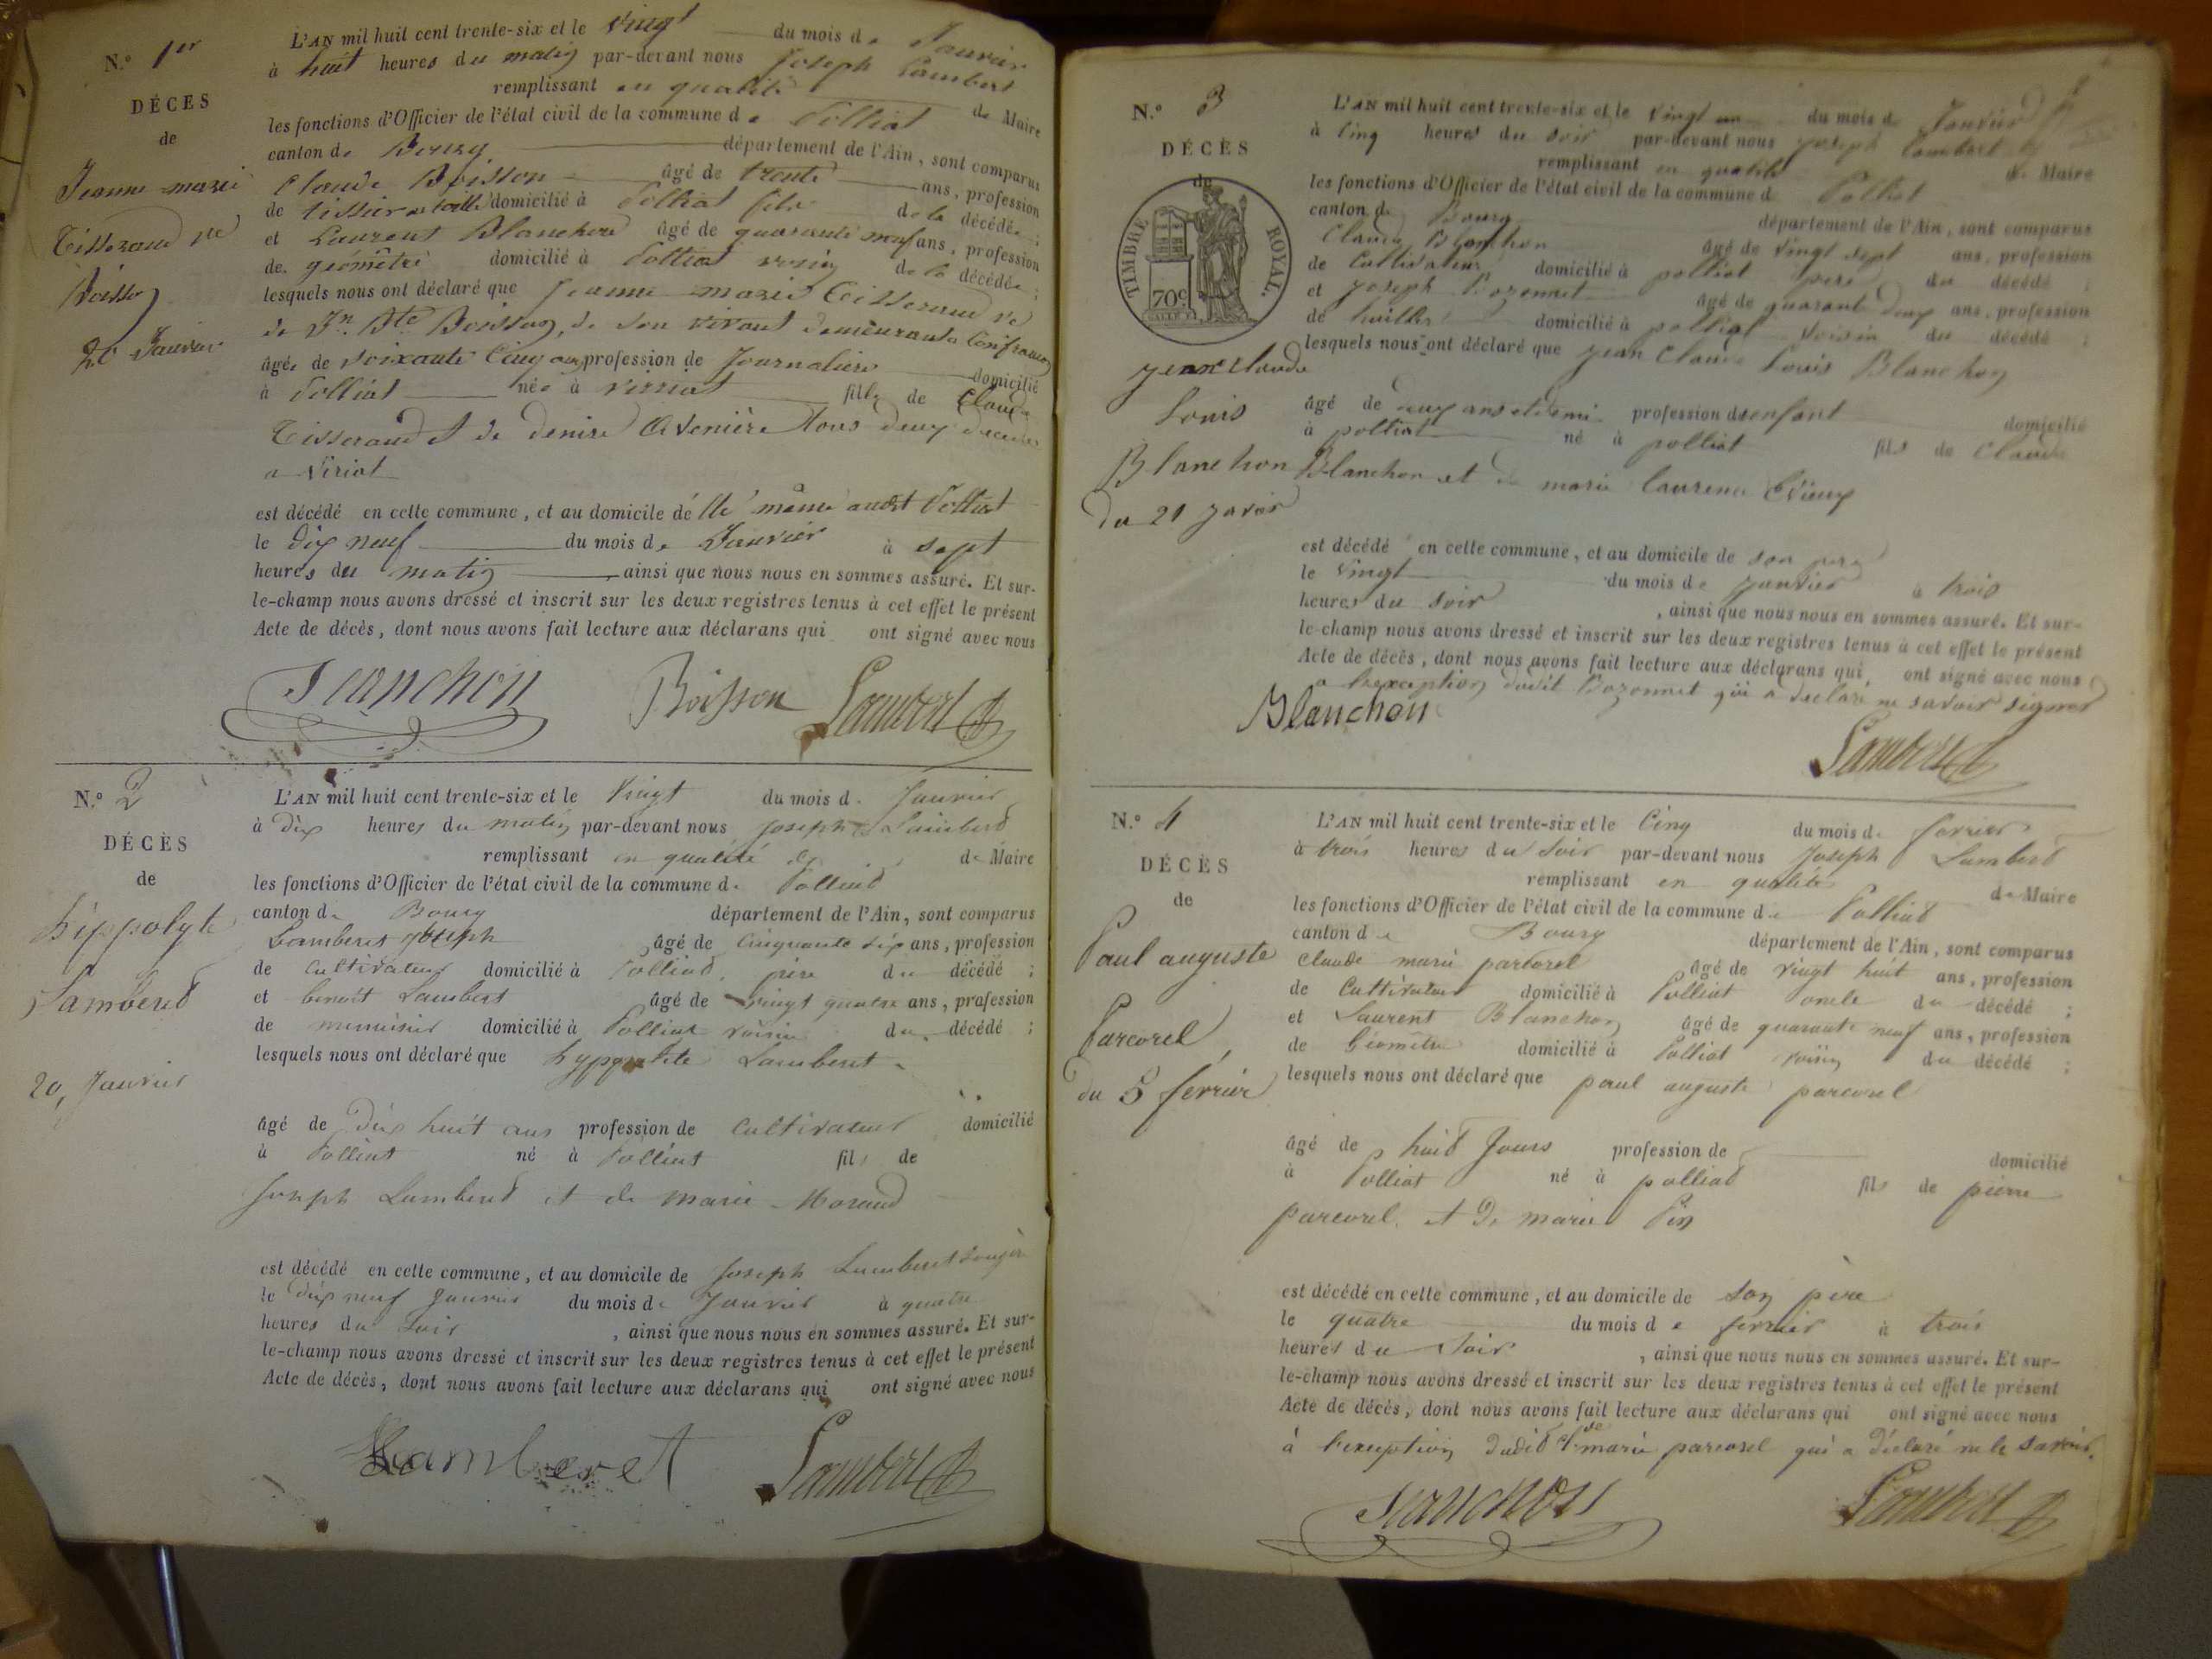 N.º 1er
DÉCES
de
Jeanne-marie
Tisserand ve
Boisson
20 Janvier
L'AN mil huit cent trente-six et le vingt du mois de Janvier
à huit heures du matin par-devant nous Joseph Lambert
remplissant en qualité de Maire
les fonctions d'Officier de l'état civil de la commune de Polliat
canton de Bourg département de l'Ain, sont comparus
Claude Boisson âgé de trente ans, profession
de tissier en toille domicilié à Polliat fils de la décédée ;
et Laurent Blanchon âgé de quarante neuf ans, profession
de géomètre domicilié à Polliat voisin de la décédée ;
lesquels nous ont déclaré que Jeanne-marie Tisserand ve
de Jn Bte Boisson, de son vivant demeurant à Confrançon
âgée de soixante cinq ans profession de Journalière domicilié
à Polliat née à viriat fille de Claude
Tisserand et de denise Avenière tous deux décédés
a Viriat
est décédé en cette commune, et au domicile de lle même audt Polliat
le dix neuf du mois de Janvier à sept
heures du matin ainsi que nous nous en sommes assuré. Et sur-
le-champ nous avons dressé et inscrit sur les deux registres tenus à cet effet le présent
Acte de décès, dont nous avons fait lecture aux déclarans qui ont signé avec nous
Blanchon Boisson Lambert
N.º 2
DÉCÈS
de
hippolyte
Lamberet
20, Janvier
L'AN mil huit cent trente-six et le vingt du mois de Janvier
à dix heures du matin par-devant nous Joseph Lambert
remplissant en qualité de Maire
les fonctions d'Officier de l'état civil de la commune de Polliat
canton de Bourg département de l'Ain, sont comparus
Lamberet joseph âgé de cinquante six ans, profession
de cultivateur domicilié à Polliat, père du décédé ;
et benoit Lambert âgé de vingt quatre ans, profession
de menuisier domicilié à Polliat voisin du décédé ;
lesquels nous ont déclaré que hyppolite Lamberet
âgé de dix huit ans profession de Cultivateur domicilié
à Polliat né à Polliat fils de
Joseph Lamberet et de marie Morand
est décédé en cette commune, et au domicile de Joseph Lamberet son père
le dix neuf Janvier du mois de Janvier à quatre
heures du soir, ainsi que nous nous en sommes assuré. Et sur-
le-champ nous avons dressé et inscrit sur les deux registres tenus à cet effet le présent
Acte de décès, dont nous avons fait lecture aux déclarans qui ont signé avec nous
Lamberet Lambert
N.º 3
DÉCÈS
de
TIMBRE ROYAL.
70c
jean claude
Louis
Blanchon
du 21 janvier
L'AN mil huit cent trente-six et le vingt un du mois de Janvier
à cinq heures du soir par-devant nous joseph Lambert
remplissant en qualité de Maire
les fonctions d'Officier de l'état civil de la commune d Polliat
canton de Bourg département de l'Ain, sont comparus
Claude Blanchon âgé de vingt sept ans, profession
de Cultivateur domicilié à polliat père du décédé ;
et joseph Bozonnet âgé de quarant deux ans, profession
de domicilié à polliat voisin du décédé ;
lesquels nous ont déclaré que jean Claude Louis Blanchon
âgé de deux ans et demi profession de enfant domicilié
à polliat né à polliat fils de Claude
Blanchon et de marie laurence
est décédé en cette commune, et au domicile de son père
le vingt du mois de janvier à trois
heures du soir, ainsi que nous nous en sommes assuré. Et sur-
le-champ nous avons dressé et inscrit sur les deux registres tenus à cet effet le présent
Acte de décès, dont nous avons fait lecture aux déclarans qui, ont signé avec nous
a l'exception dudit Bozonnet qui a déclaré ne savoir signer
Blanchon
Lambert
N.º 4
DÉCÈS
de
Paul auguste
Parcorel
du 5 fevrier
L'AN mil huit cent trente-six et le Cinq du mois de fevrier
à trois heures du soir par-devant nous Joseph Lambert
remplissant en qualité de Maire
les fonctions d'Officier de l'état civil de la commune de Polliat
canton de Bourg département de l'Ain, sont comparus
Claude marie parcorel âgé de vingt huit ans, profession
de Cultivateur domicilié à Polliat oncle du décédé ;
et Laurent Blanchon âgé de quarante neuf ans, profession
de Géomètre domicilié à Polliat voisin du décédé ;
lesquels nous ont déclaré que paul auguste parcorel
âgé de huit Jours profession de domicilié
à Polliat né à polliat fils de pierre
parcorel et De marie Pin
est décédé en cette commune, et au domicile de son père
le quatre du mois de fevrier à trois
heures du soir, ainsi que nous nous en sommes assuré. Et sur-
le-champ nous avons dressé et inscrit sur les deux registres tenus à cet effet le présent
Acte de décès, dont nous avons fait lecture aux déclarans qui ont signé avec nous
à l'exception dudit Cde marie parcorel qui a déclaré ne le savoir.
Blanchon Lambert